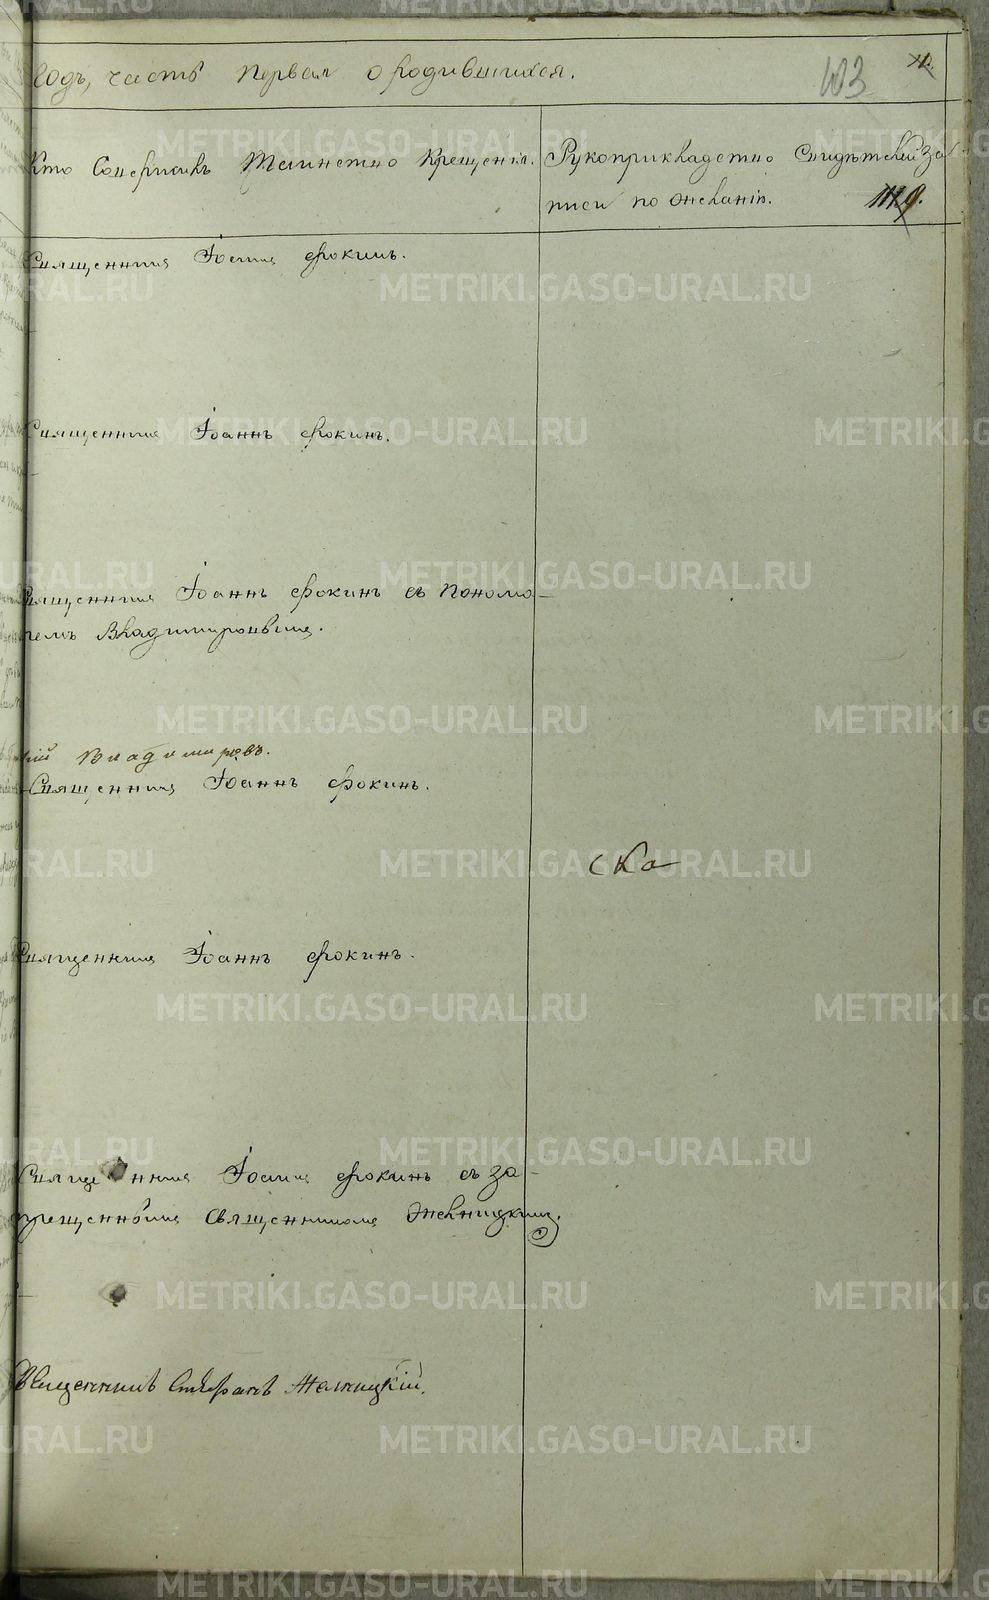 годъ, часть первая о родившихся.
103
Кто Совершалъ Таинство Крещенія.
Рукоприкладство Свидѣтелей за
писи по желанію.
Священникъ Іоаннъ Фокинъ.
Священникъ Іоаннъ Фокинъ.
Священникъ Іоаннъ Фокинъ съ понома-
ремъ Владиміровымъ.
Владимировъ.
Священникъ Іоаннъ Фокинъ.
ска
Священникъ Іоаннъ Фокинъ.
Священникъ Іоаннъ Фокинъ съ за-
прещеннымъ Священникомъ
Священникъ Стефанъ
METRIKI.GASO-URAL.RU